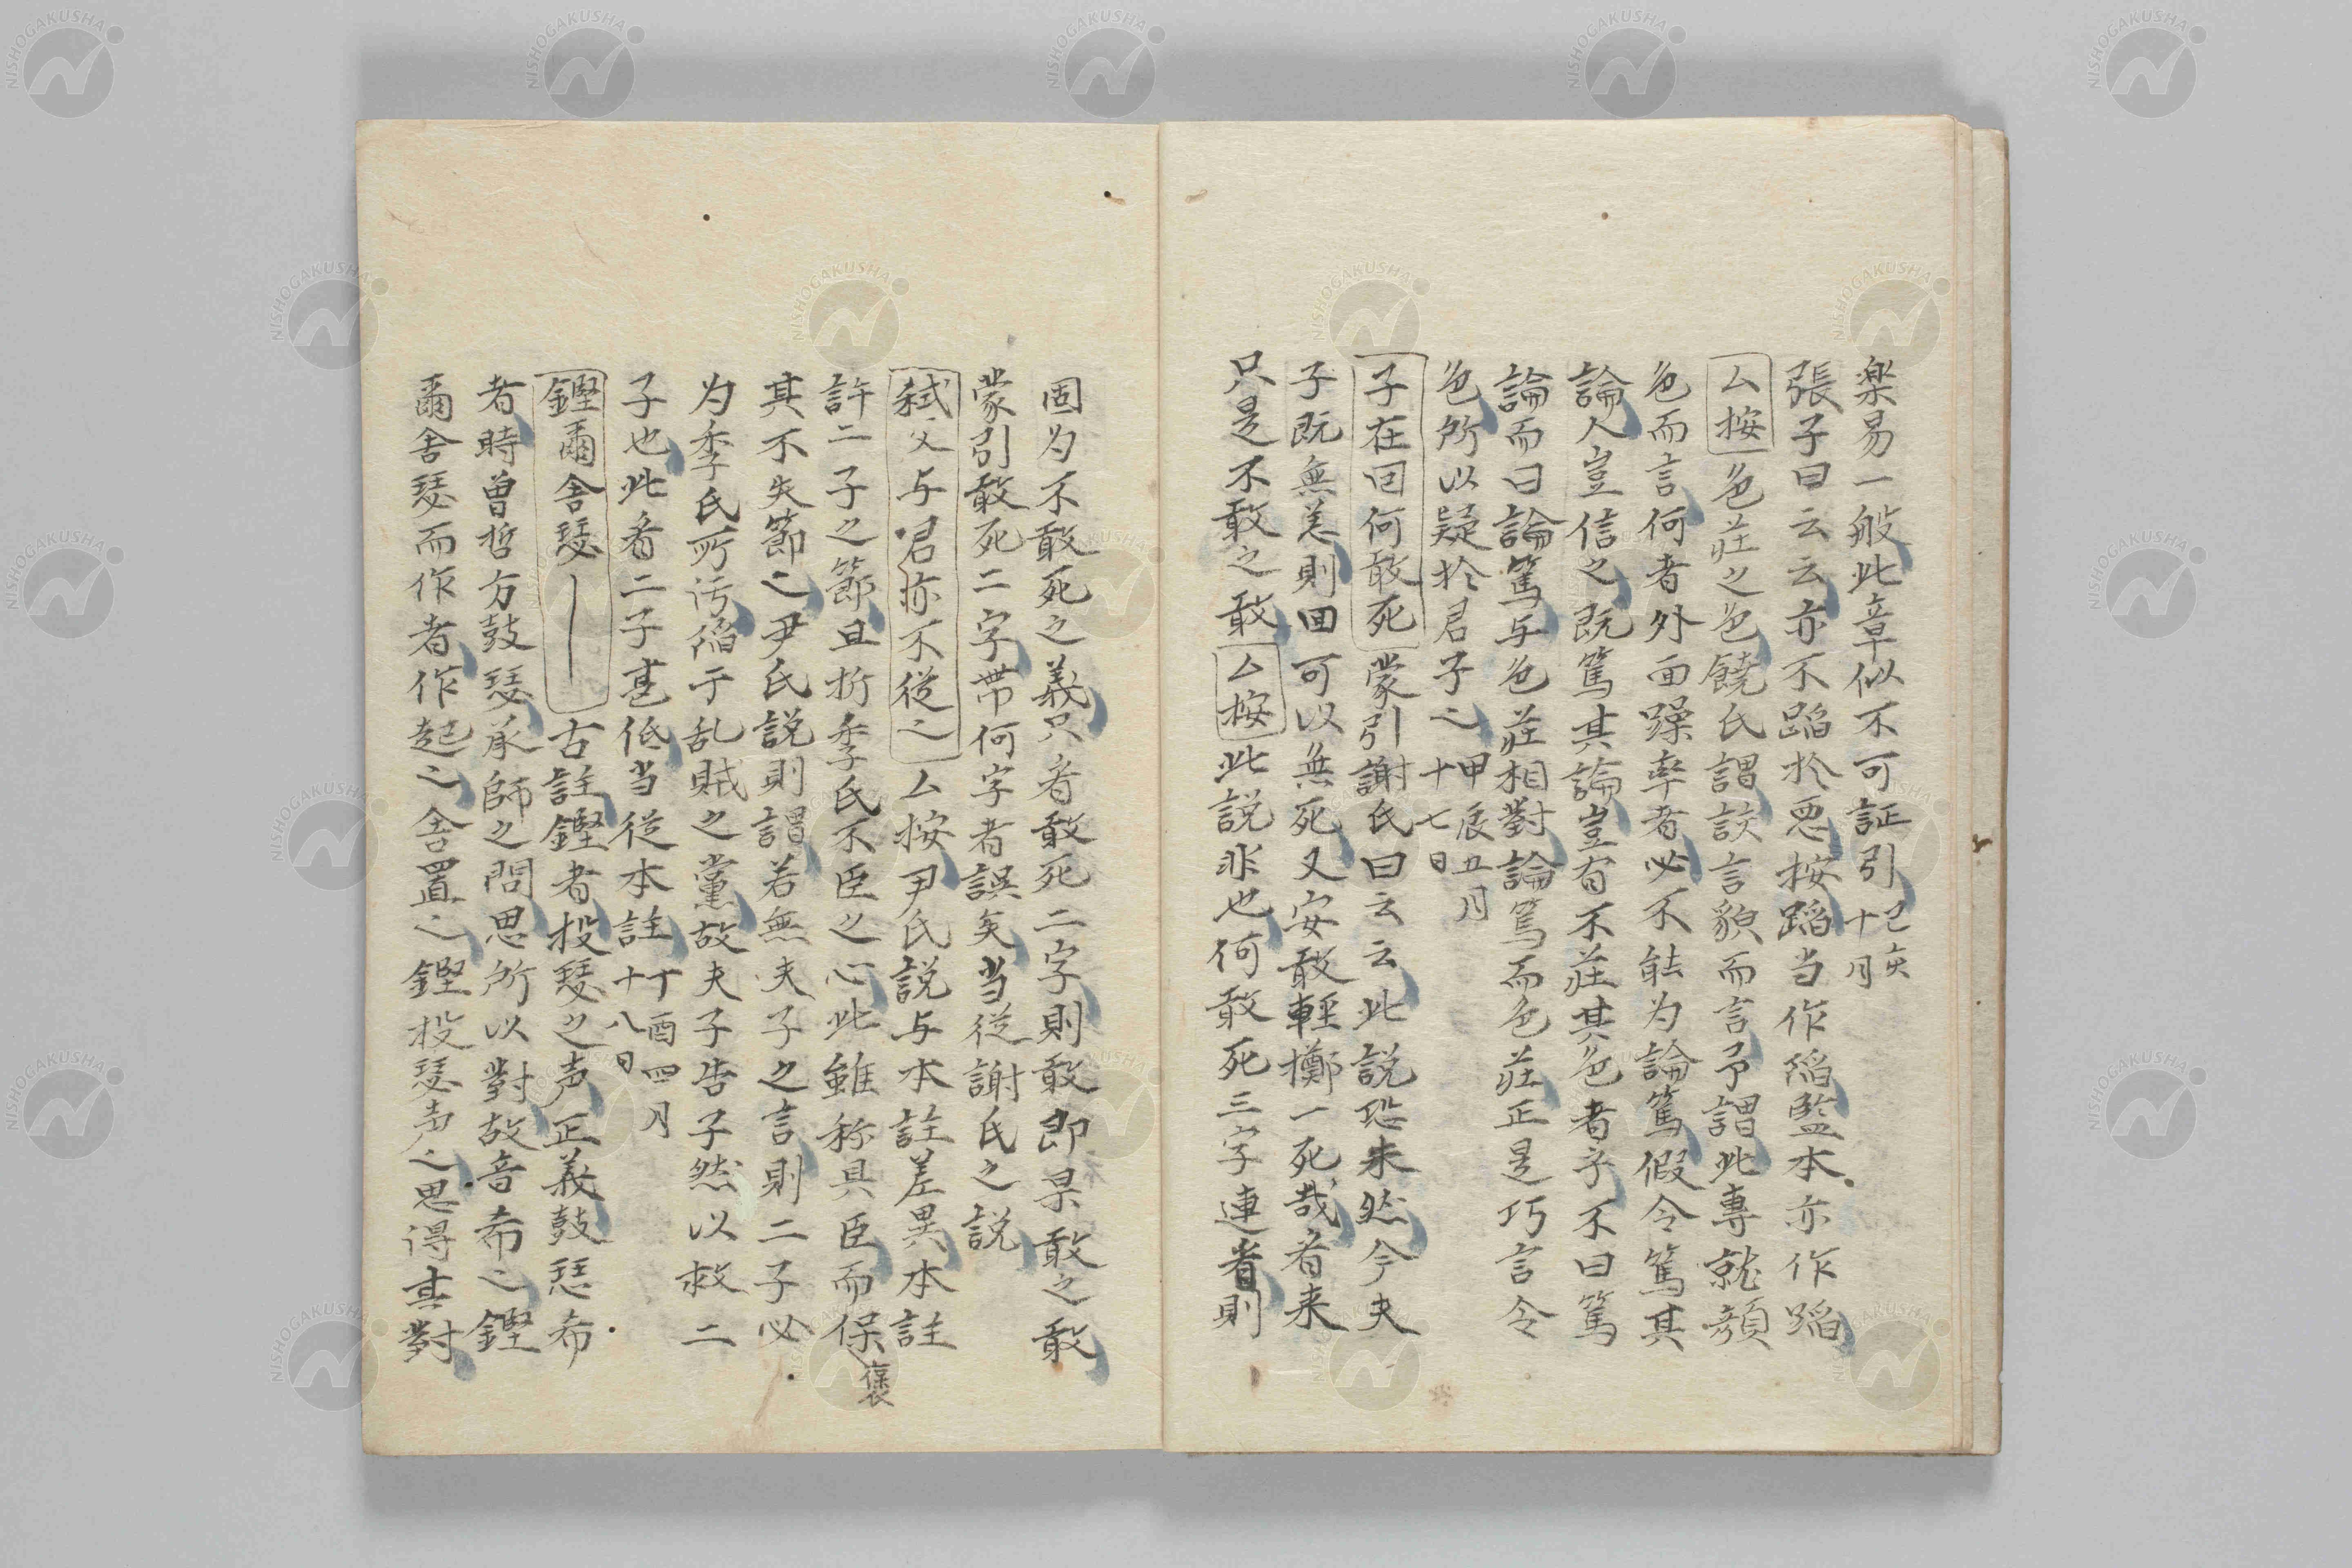 楽易一般此章似不可証引己亥十月
張子曰云云亦不蹈於悪按蹈当作陷監本亦作蹈
厶按色荘之色饒氏謂訣言貌而言予謂此專就顔
色而言何者外面躁率者必不能为論篤假令篤其
論人豈信之既篤其論豈有不荘其色者乎不曰篤
論而曰論篤与色荘相對論篤而色荘正是巧言令
色所以疑於君子之甲辰五月十七日
子在回何敢死蒙引謝氏曰云云此説恐未然今夫
子既無恙則回可以無死又安敢輕擲一死哉看来
只是不敢之敢厶按此説非也何敢死三字連看則
固为不敢死之義只看敢死二字則敢即果敢之敢
蒙引敢死二字帯何字者誤矣当從謝氏之説
弑父与君亦不從之厶按尹氏説与本註差異本註
許二子之節且折季氏不臣之心此雖称具臣而保褒
其不失節之尹氏説則謂若無夫子之言則二子必
为季氏所汚陷于乱賊之黨故夫子告子然以救二
子也此看二子甚低当從本註丁酉四月十八日
鏗爾舎瑟｜古註鏗者投瑟之声正義鼓瑟希
者時曽晳方鼓瑟承師之問思所以對故音希之鏗
爾舎瑟而作者作起之舎置之鏗投瑟声之思得其對
NISHOGAKUSHA